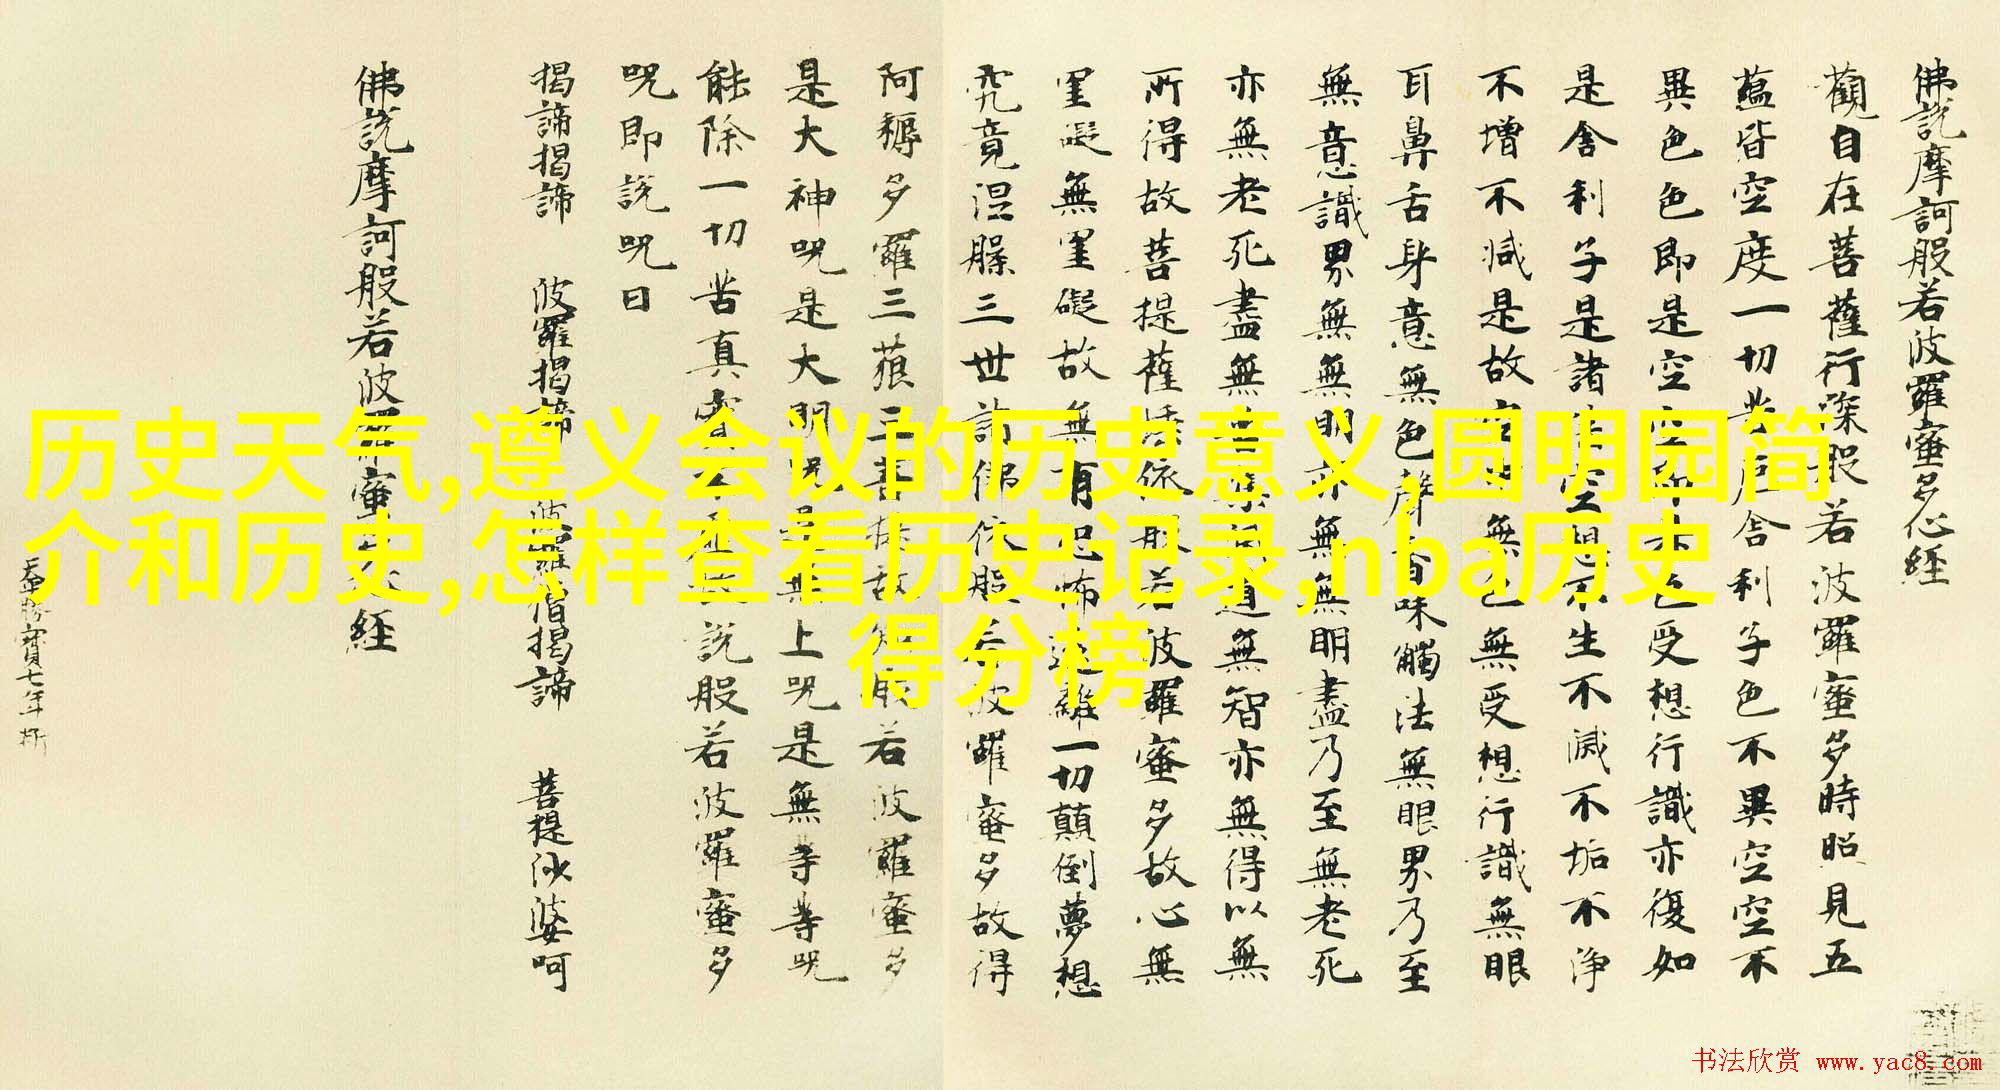 历史天气,遵义会议的历史意义,圆明园简
介和历史,怎样查看历史记录,nba历史
得分榜
佛說摩訶般若波羅蜜多心經
觀自在菩薩行深般若波羅蜜多時照見五
蘊皆空度一切苦厄舍利子色不異空空不
異色色即是空空即是色受想行識亦復如
是舍利子是諸法空想不生不滅不垢不淨
不增不減是故空中無色無受想行識無眼
耳鼻舌身意無色聲香味觸法無眼界乃至
無意識界無無明亦無無明盡乃至無老死
亦無老死盡無苦集滅道無智亦無得以無
所得故菩提薩埵依般若波羅蜜多故心無
罣礙無罣礙故無有恐怖遠離一切顛倒夢想
究竟涅槃三世諸佛依般若波羅蜜多故得
阿耨多羅三藐三菩提故知般若波羅蜜多
是大神咒是大明咒是無上咒是無等等咒
能除一切苦真實不虛故說般若波羅蜜多
咒即說咒曰
揭諦揭諦 波羅揭諦 波羅僧揭諦 菩提沙婆呵
佛說摩訶般若波羅蜜多心經
勝寶七年
书法欣赏 www.yac8.com